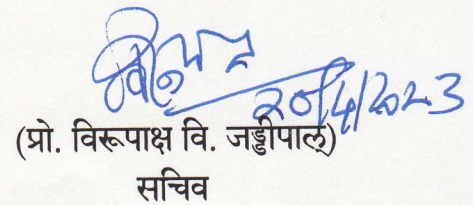 20/4/2023
(प्रो. विरूपाक्ष वि. जड्डीपाल्)
सचिव